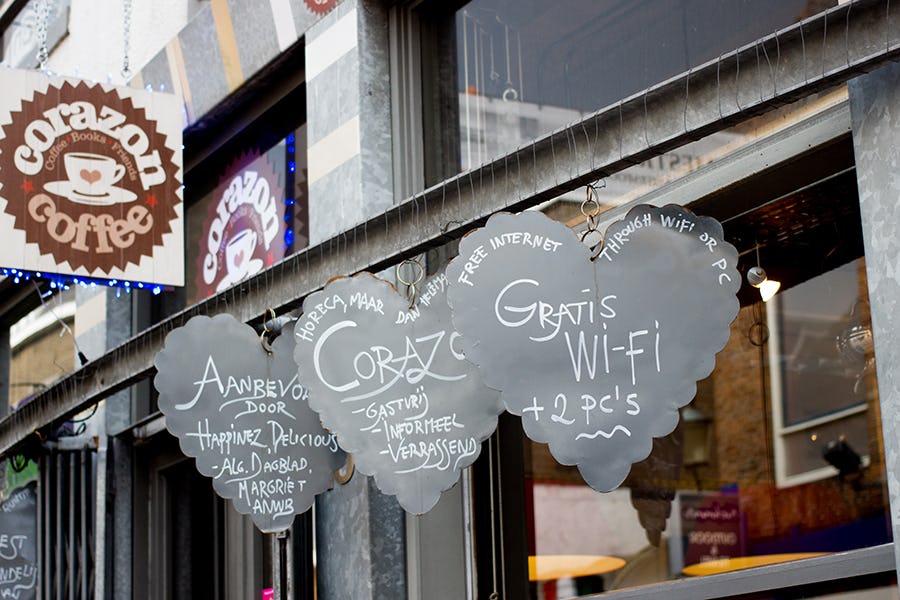 corazon
Coffee • Books • Friends
coffee
corazon
AANBEVO
DOOR
HAPPINEZ, DELICIOUS
-ALG. DAGBLAD,
MARGRIET
ANWB
HORECA, MAAR
DAN
CORAZO
-GASTVRIJ
-INFORMEEL
-VERRASSEND
FREE INTERNET
THROUGH WIFI OR PC
GRATIS
Wi-Fi
+ 2 PC'S